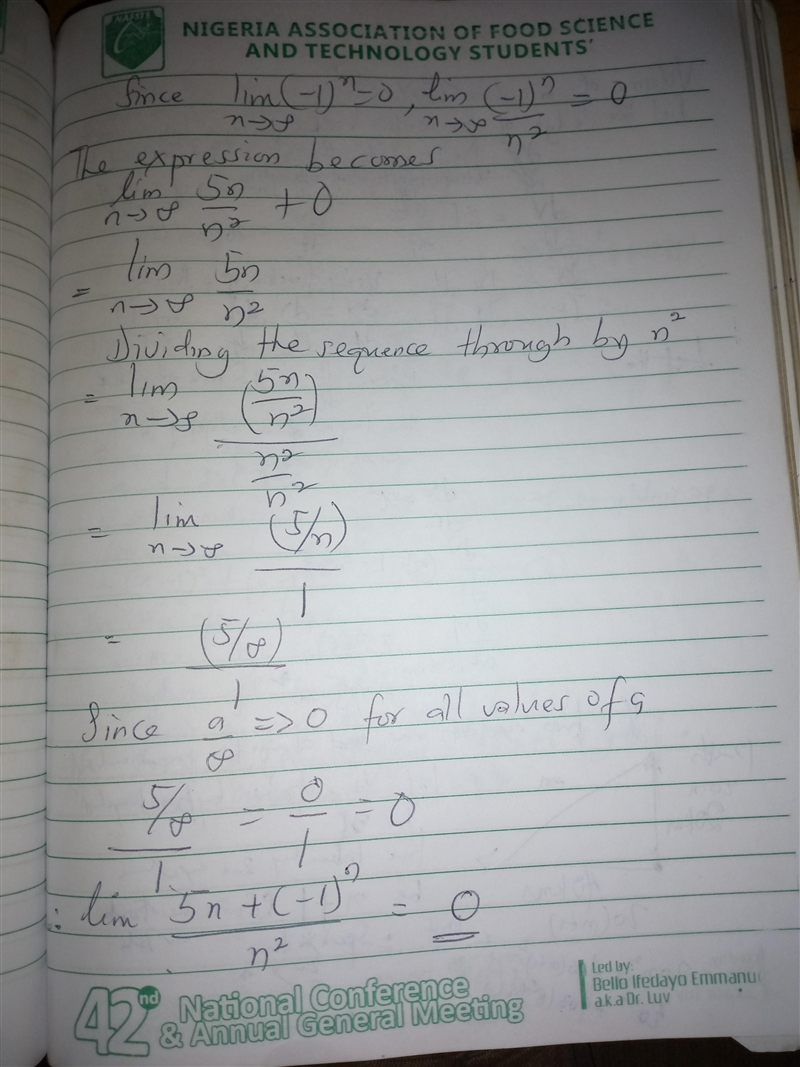 NIGERIA ASSOCIATION OF FOOD SCIENCE
AND TECHNOLOGY STUDENTS'
Since lim n→∞ (-1)^n = 0, lim n→∞ (-1)^n / n^2 = 0
The expression becomes
lim n→∞ 5n / n^2 + 0
= lim n→∞ 5n / n^2
Dividing the sequence through by n^2
= lim n→∞ (5n / n^2) / (n^2 / n^2)
= lim n→∞ (5/n) / 1
= (5/∞) / 1
Since a/∞ => 0 for all values of a
(5/∞) / 1 = 0/1 = 0
∴ lim (5n + (-1)^n) / n^2 = 0
42nd National Conference
& Annual General Meeting
Led by:
Bello Ifedayo Emmanu
a.k.a Dr. Luv